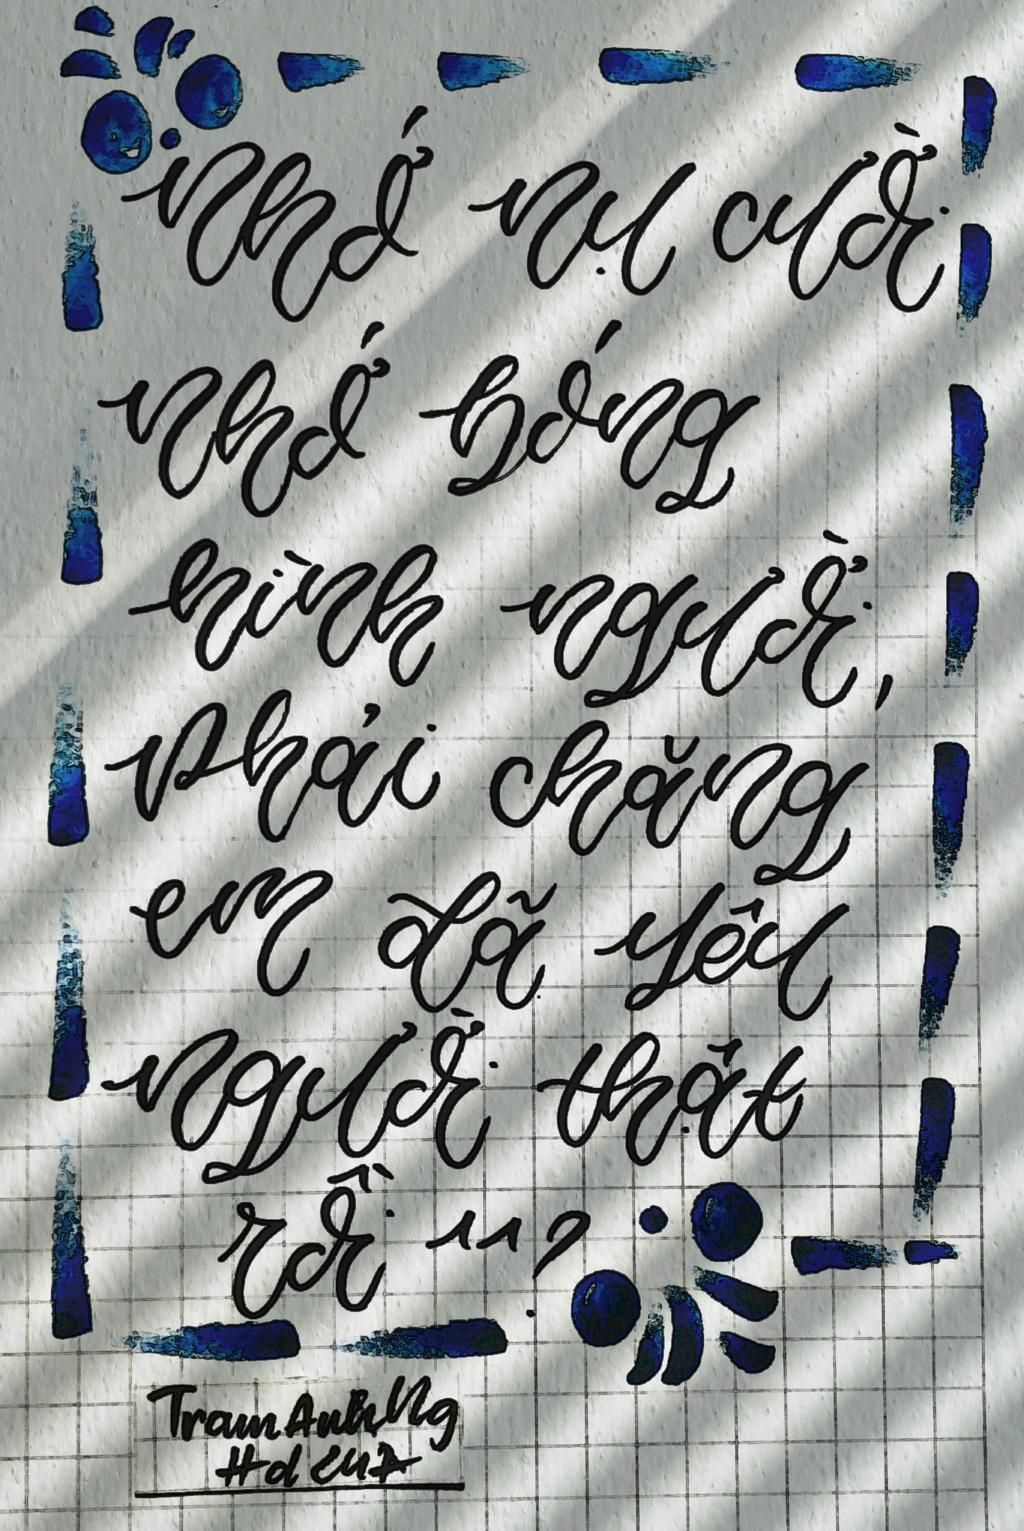 Nhớ nụ cười
nhớ bóng
hình người,
Phải chăng
em đã yêu
người thật
rồi 11?
TramAnhNg